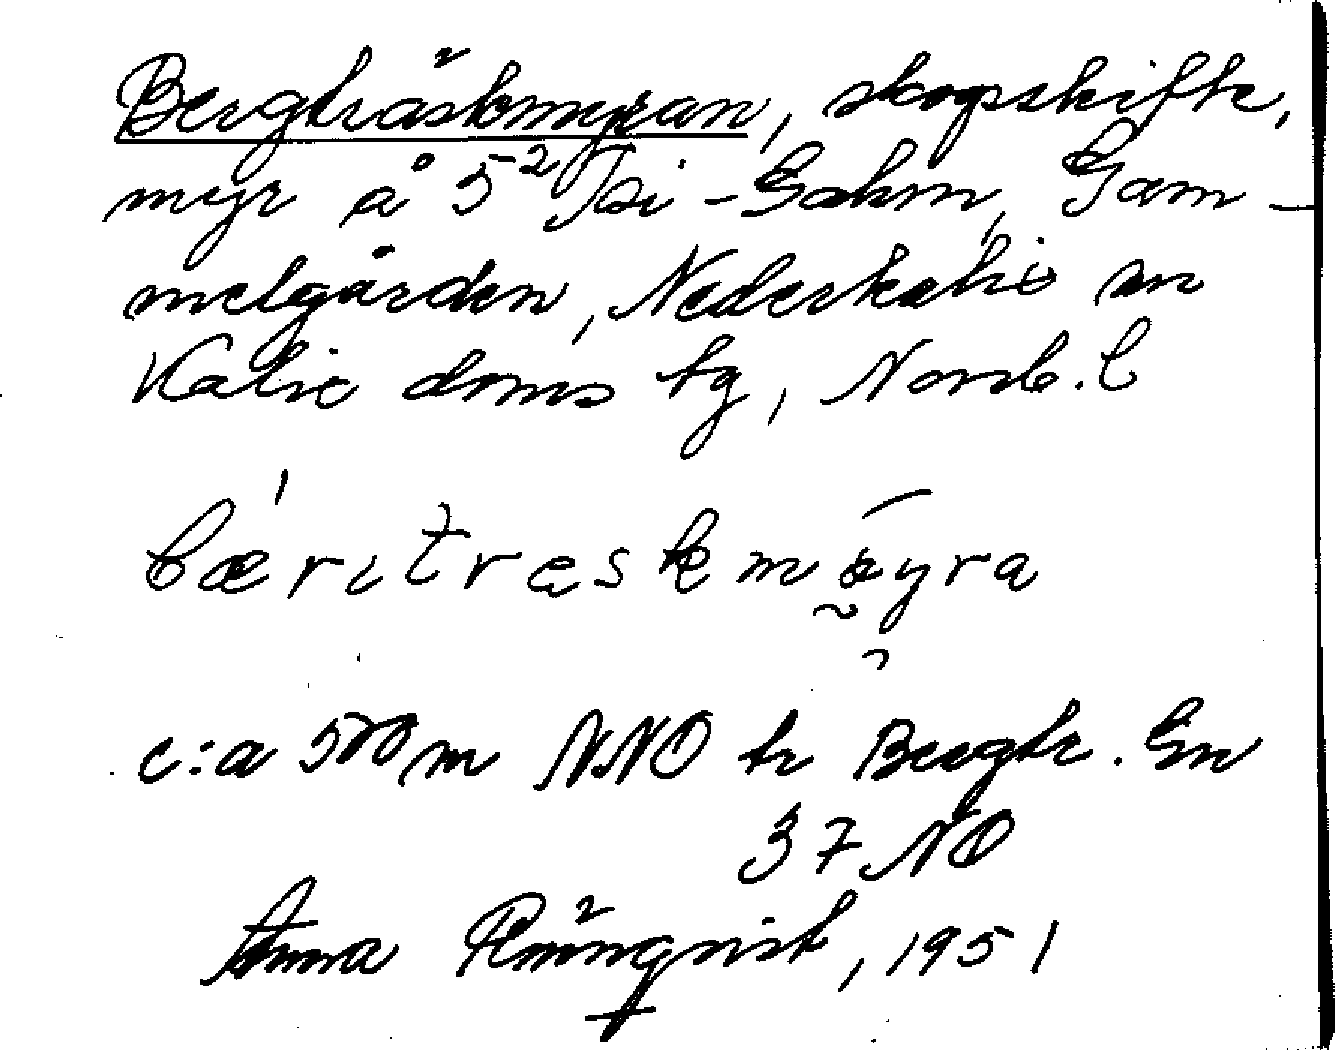 Bergträskmyran, skogsskifte,
myr å 5² Tsi-Sakm, Gam-
melgården, Nederkalix sn
Kalix doms tg, Norrb. l
bæritræskmyra
c:a 500 m NNO tr Bergtr. Sn
37 NO
Anna Rönnqvist, 1951